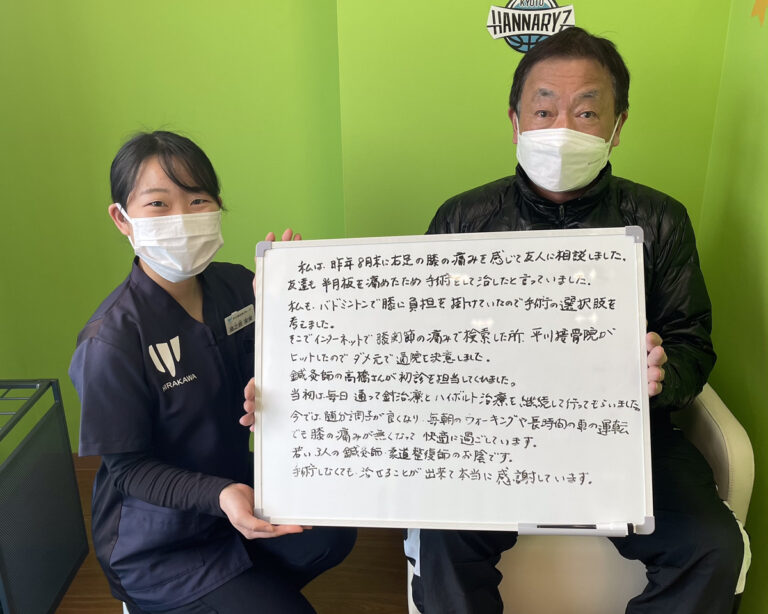 KYOTO
HANNARYZ
HIRAKAWA
私は、昨年8月末に右足の膝の痛みを感じて友人に相談しました。
友達も半月板を痛めたため手術をして治したと言っていました。
私も、バドミントンで膝に負担を掛けていたので手術の選択肢を
考えました。
そこでインターネットで膝関節の痛みで検索した所、平川接骨院が
ヒットしたのでダメ元で通院を決意しました。
鍼灸師の高橋さんが初診を担当してくれました。
当初は毎日通って針治療とハイボルト治療を継続して行ってもらいました。
今では随分調子が良くなり、毎朝のウォーキングや長時間の車の運転
でも膝の痛みが無くなって快適に過ごしています。
若い3人の鍼灸師・柔道整復師のお陰です。
手術しなくても治せることが出来て本当に感謝しています。